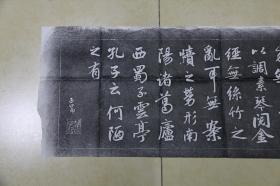 以調素琴閱金
經無絲竹之
亂耳無案
牘之勞形南
陽諸葛廬
西蜀子雲亭
孔子云何陋
之有